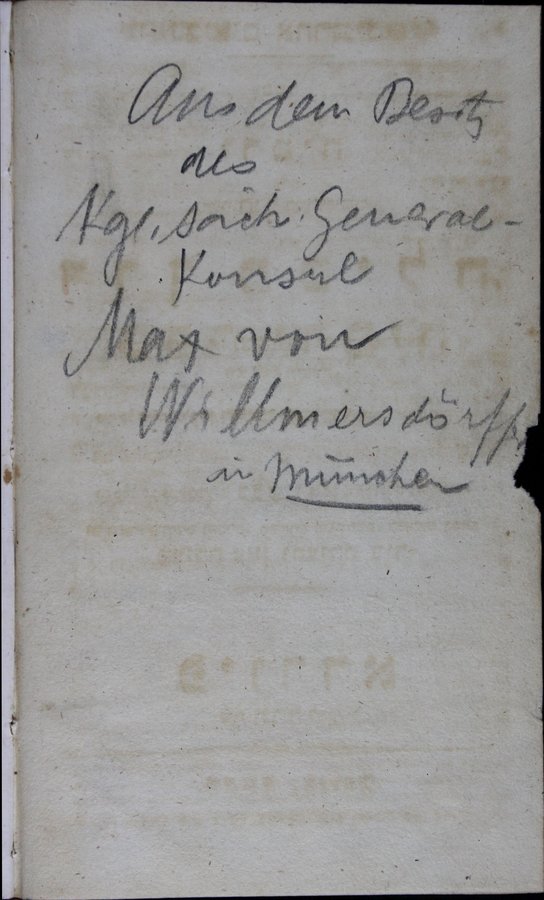 Aus dem Besitz
des
Kgl. säch. General-
Konsul
Max von
Wilmersdörffer
in München